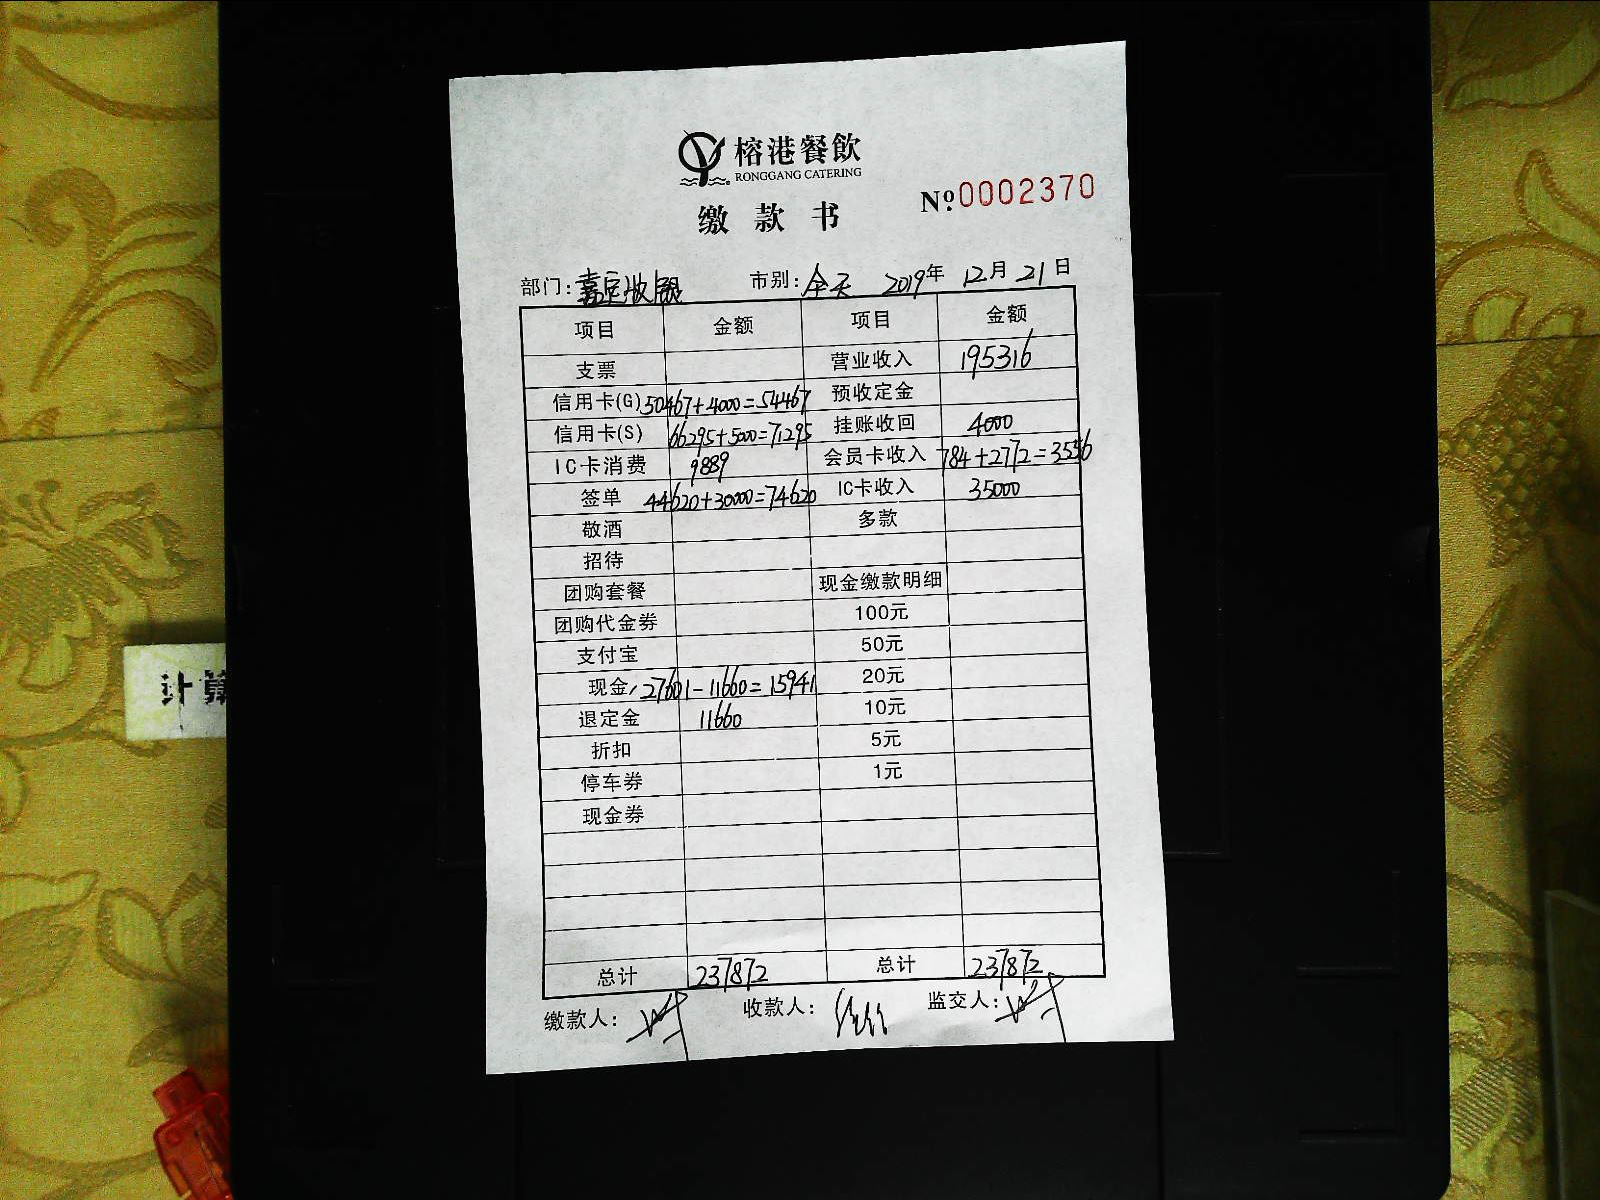 榕港餐飲
RONGGANG CATERING
缴款书
Nº.0002370
部门:嘉定收银 市别:全天 2019年12月21日
项目 金额 项目 金额
支票 营业收入 195316
信用卡(G) 50467+4000=54467 预收定金
信用卡(S) 66295+5000=71295 挂账收回 4000
IC卡消费 9889 会员卡收入 784+2772=3556
签单 44620+30000=74620 IC卡收入 35000
敬酒 多款
招待
团购套餐 现金缴款明细
团购代金券 100元
支付宝 50元
现金 27601-11660=15941 20元
退定金 11660 10元
折扣 5元
停车券 1元
现金券
总计 237872 总计 237872
缴款人: 收款人: 监交人:
计算